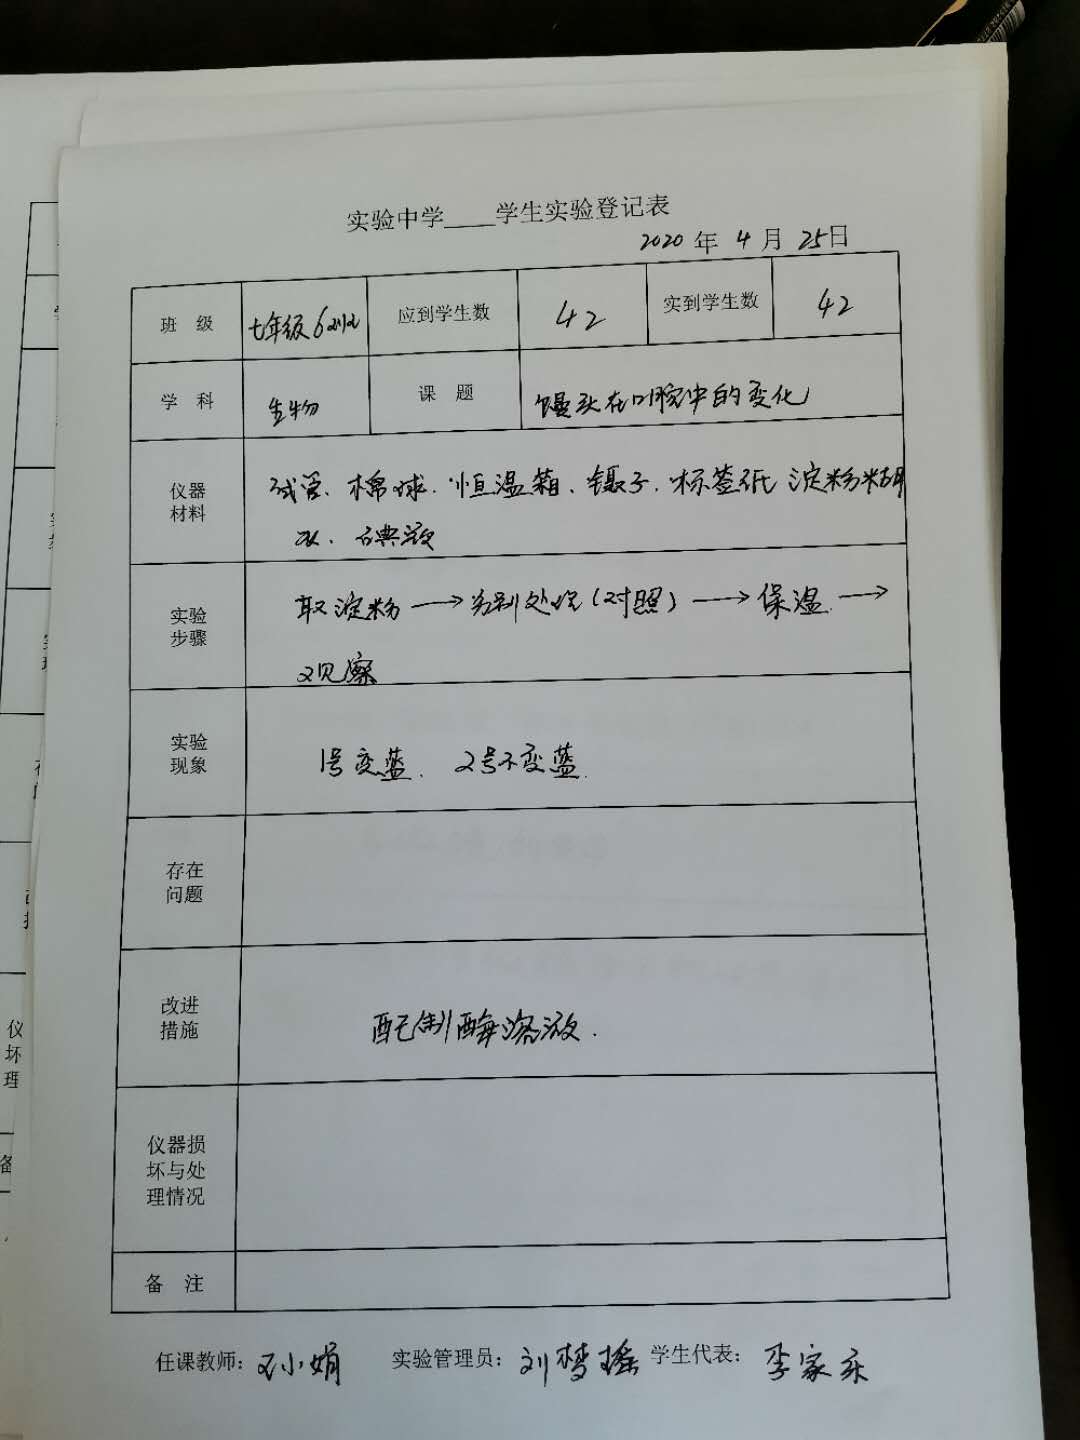 实验中学____学生实验登记表
2020 年 4 月 25日
班 级 七年级6班 应到学生数 42 实到学生数 42
学 科 生物 课 题 馒头在口腔中的变化
仪器
材料
试管、棉球、恒温箱、镊子、标签纸 淀粉糊
水、碘液
实验
步骤
取淀粉→分别处理(对照)→保温→
观察
实验
现象
1号变蓝、2号不变蓝.
存在
问题
改进
措施
配制酶溶液.
仪器损
坏与处
理情况
备 注
任课教师: 小娟 实验管理员: 刘梦瑶 学生代表: 李家乐
仪
坏
理
备